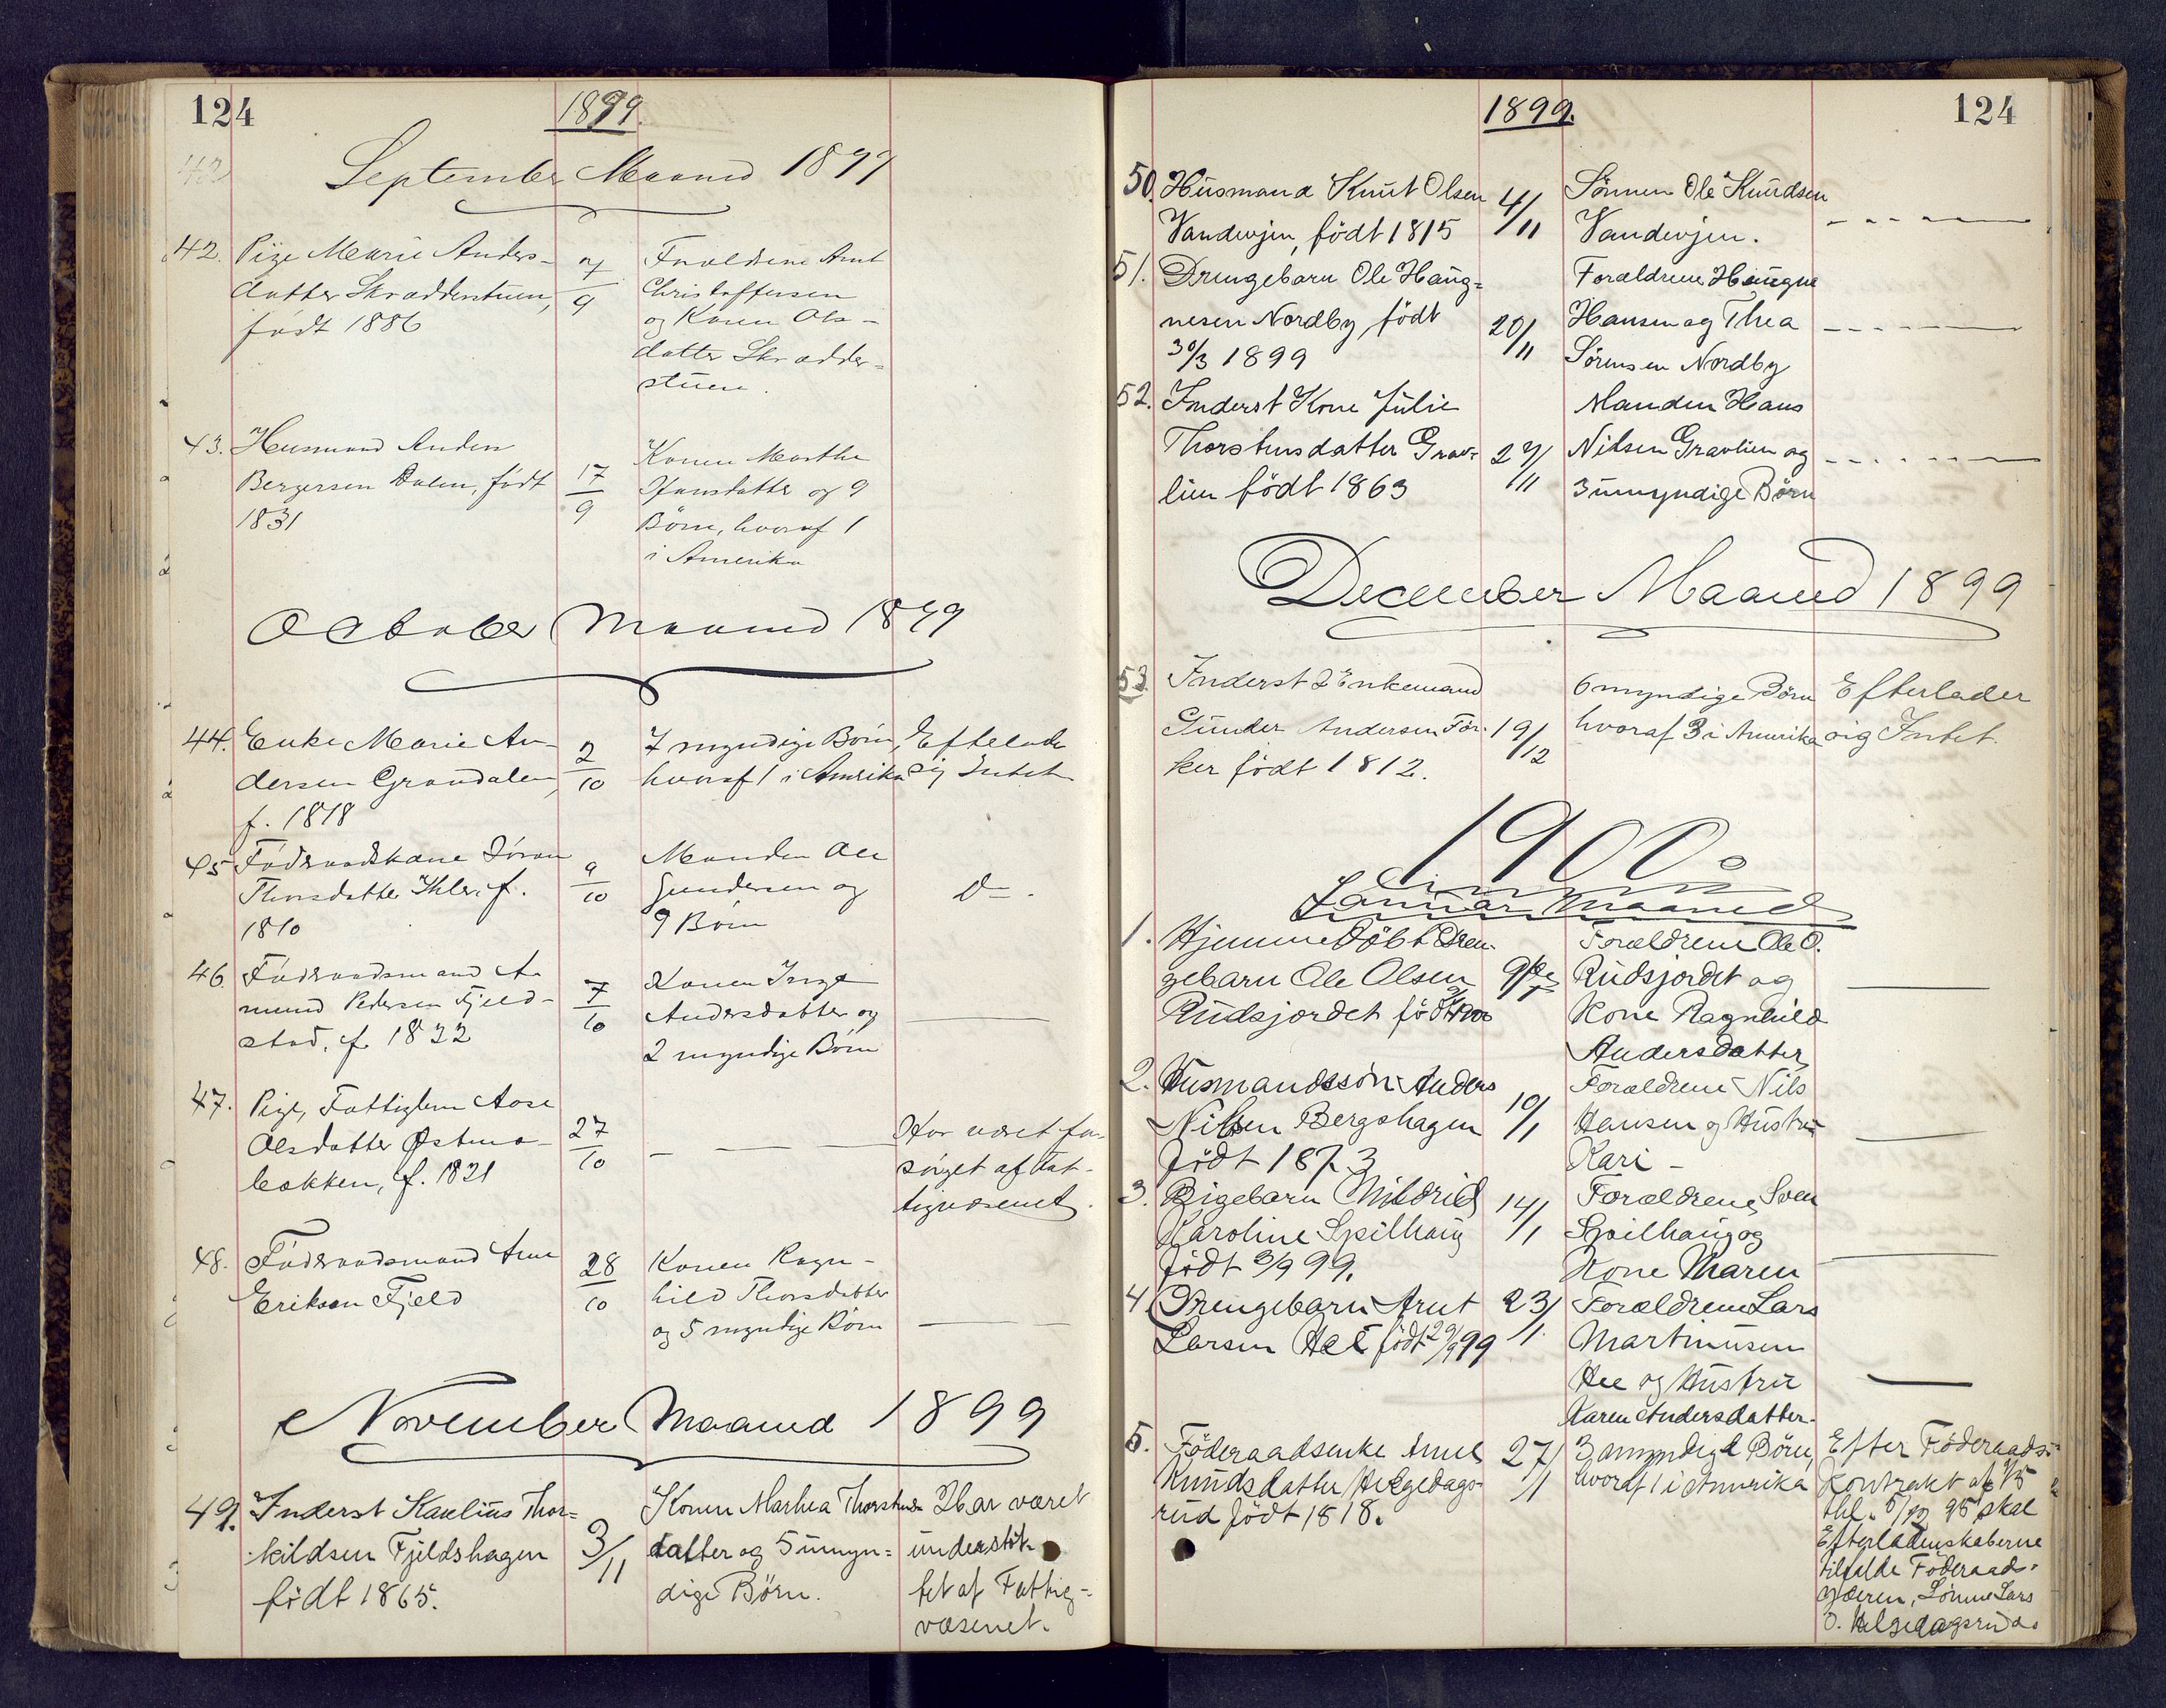 124
1899.
September Maaned 1899
42. Pige Marie Anders-
datter Skrædderstuen,
født 1886
7/9
Forældrene Arnt
Christoffersen
og Karen Ols-
datter Skrædder-
stuen.
43. Husmand Anders
Bergersen Dalen, født
1831
17/9
Konen Marthe
Hansdatter og 9
Børn, hvoraf 1
i Amerika
October Maaned 1899
44. Enke Marie An-
dersen Grandalen,
f. 1818
2/10
7 myndige Børn,
hvoraf 1 i Amerika
Efterlader
sig Intet
45 Føderaadskone Jøran
Thorsdatter Ihler, f.
1810
9/10
Manden Ole
Gundersen og
9 Børn
Do.
46. Føderaadsmand A-
mund Pedersen Fjeld-
stad, f. 1822
7/10
Konen Inge
Andersdatter og
2 myndige Børn
47. Pige, Fattiglem Aase
Olsdatter Østmo-
bakken, f. 1821
27/10
Har været for-
sørget af Fat-
tigvæsenet.
48. Føderaadsmand Arne
Eriksen Fjeld
28/10
Konen Ragn-
hild Thorsdatter
og 5 myndige Børn
November Maaned 1899
49. Inderst Karelius Thor-
kildsen Fjeldshagen
født 1865.
3/11
Konen Marhea Thorstens
datter og 5 umyn-
dige Børn.
Har været
understøt-
tet af Fattig-
væsenet.
1899.
124
50. Husmand Knut Olsen
Vandevjen, født 1815
4/11
Sønnen Ole Knudsen
Vandevjen.
51. Drengebarn Ole Haug-
nesen Nordby, født
30/3 1899
20/11
Forældrene Haugne
Hansen og Thea
Sørensen Nordby
52. Inderst Kone Julie
Thorstensdatter Grav-
lien født 1863
27/11
Manden Hans
Nilsen Gravlien og
3 umyndige Børn
December Maaned 1899
53. Inderst & Enkemand
Gunder Andersen For-
ker født 1812.
19/12
6 myndige Børn
hvoraf 3 i Amerika
Efterlader
sig Intet.
1900.
Januar Maaned
1. Hjemmedøbt Dren-
gebarn Ole Olsen
Rudsjordet født
Forældrene Ole O.
Rudsjordet og
Kone Ragnhild
Andersdatter
2. Husmandssøn Anders
Nilsen Bergshagen
født 1873
10/1
Forældrene Nils
Hansen og Hustru
Kari -
3. Pigebarn Mildrid
Karoline Spilhaug
født 3/9 99.
14/1
Forældrene Sven
Spilhaug og
Kone Maren
4. Drengebarn Arnt
Larsen Hee født 29/9 99
23/1.
Forældrene Lars
Martinusen
Hee og Hustru
Karen Andersdatter.
5. Føderaadsenke Anne
Knudsdatter Helgedags-
rud født 1818.
27/1
3 myndige Børn,
hvoraf 1 i Amerika
Efter Føderaads-
Kontrakt af
thl. 95 skal
Efterladenskaberne
tilfalde Føderaads-
yderen, Sønnen Lars
O. Helgedagsrud.